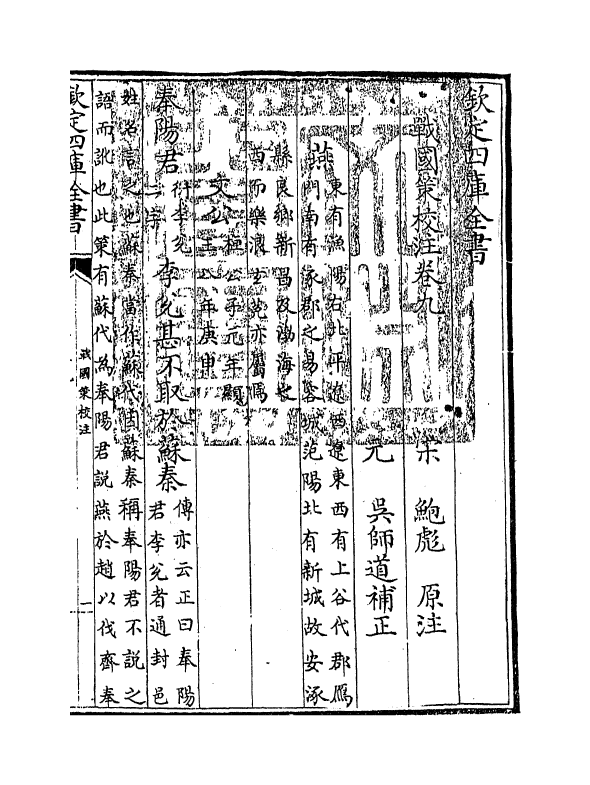 欽定四庫全書
戰國策校注卷九
宋 鮑彪 原注
元 吳師道補正
燕
東有漁陽右北平遼西遼東西有上谷代郡鴈
門南有涿郡之易容城范陽北有新城故安涿
縣良鄉新昌及渤海之
西而樂浪玄菟亦屬焉
文公
桓公子元年顯
王八年庚申
奉陽君
衍李兌
二字
李兌甚不取於蘇秦
傳亦云正曰奉陽
君李兌者通封邑
姓名言之也蘇秦當作蘇代因蘇秦稱奉陽君不說之
語而訛也此策有蘇代為奉陽君說燕於趙以伐齊奉
欽定四庫全書
戰國策校注
一